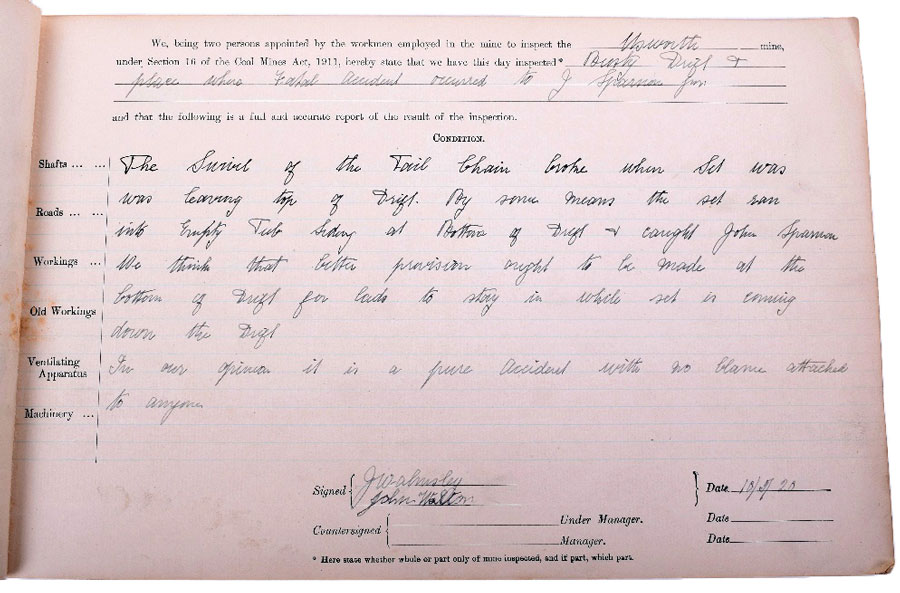 We, being two persons appointed by the workmen employed in the mine to inspect the Usworth mine,
under Section 16 of the Coal Mines Act, 1911, hereby state that we have this day inspected* Busty Drift &
place where Fatal Accident occurred to J Sparrow Jun.
and that the following is a full and accurate report of the result of the inspection.
CONDITION.
Shafts ... ... The Swivel of the Tail Chain broke when Set was
was leaving top of Drift. By some means the set ran
Roads ... ...
into Empty Tub Siding at Bottom of Drift & caught John Sparrow
Workings ... ... We think that better provision ought to be made at the
bottom of Drift for lads to stay in while set is coming
Old Workings
down the Drift
Ventilating
Apparatus In our opinion it is a pure Accident with no blame attached
to anyone
Machinery ...
Signed J Walmsley
John Walton
Date 20
Countersigned Under Manager. Date
Manager. Date
* Here state whether whole or part only of mine inspected, and if part, which part.